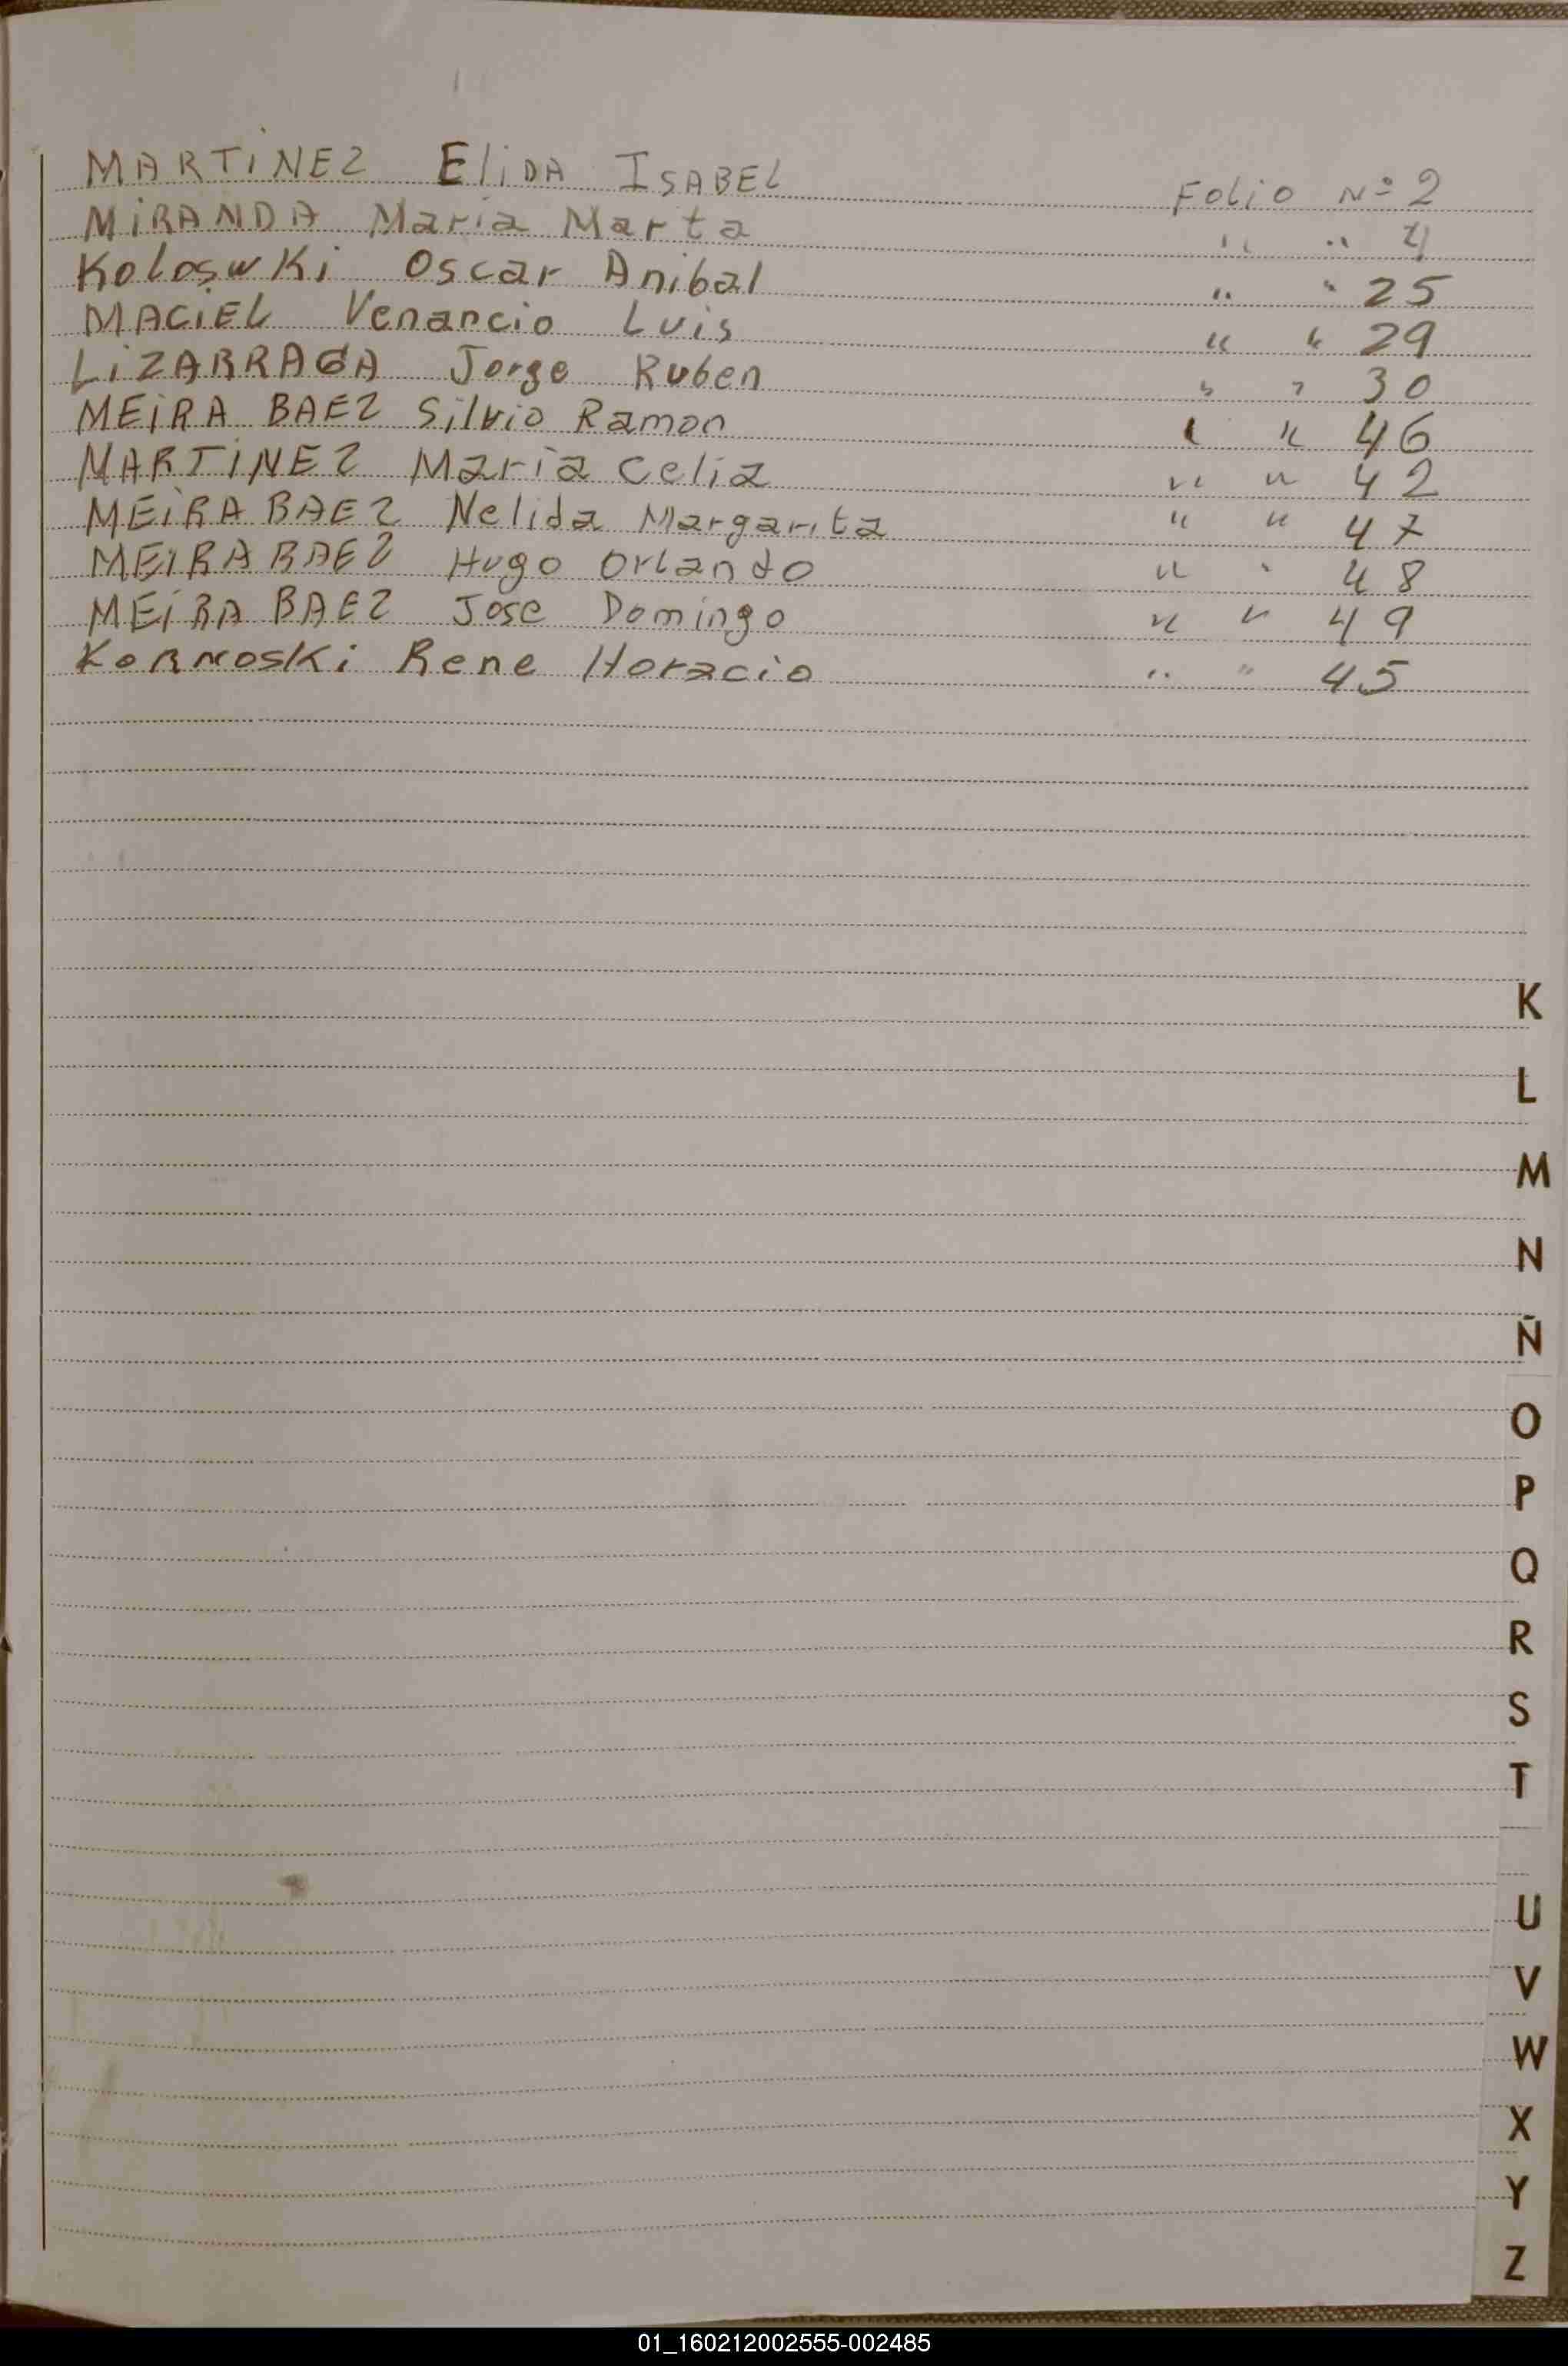 MARTINEZ Elida ISABEL Folio Nº 2
MIRANDA Maria Marta " " 4
Koloswki Oscar Anibal " " 25
MACIEL Venancio Luis " " 29
LIZARRAGA Jorge Ruben " " 30
MEIRA BAEZ Silvio Ramon " " 46
MARTINEZ Maria Celia " " 42
MEIRA BAEZ Nelida Margarita " " 47
MEIRA BAEZ Hugo Orlando " " 48
MEIRA BAEZ Jose Domingo " " 49
Kornoski Rene Horacio " " 45
K
L
M
N
Ñ
O
P
Q
R
S
T
U
V
W
X
Y
Z
01_160212002555-002485